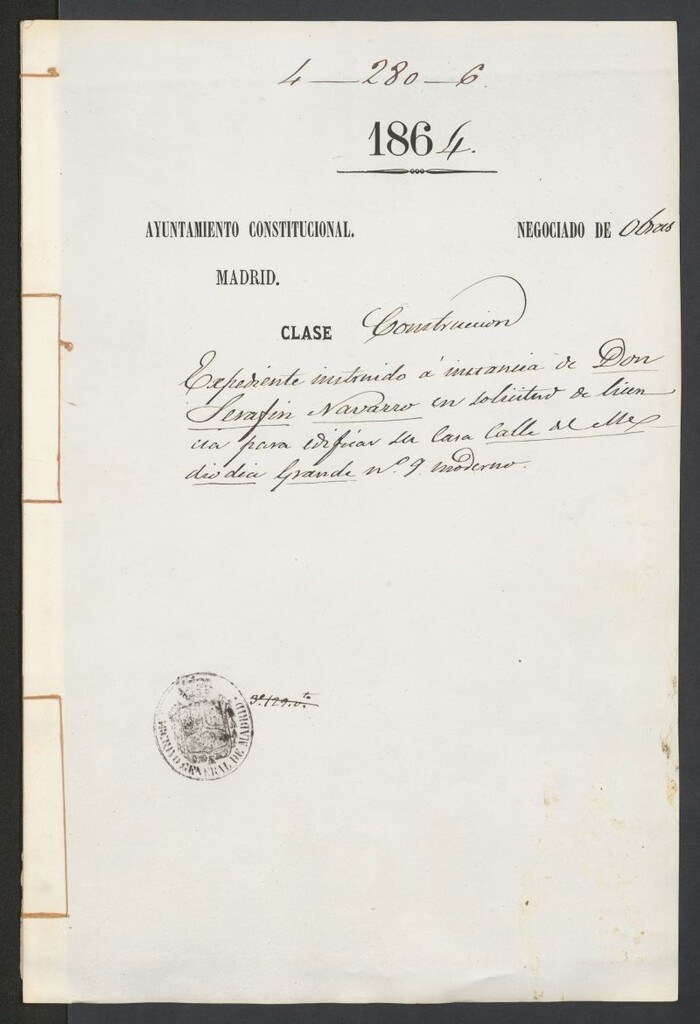 4 — 280 — 6.
1864.
AYUNTAMIENTO CONSTITUCIONAL. NEGOCIADO DE Obras
MADRID.
CLASE Construccion
Expediente instruido á instancia de Don
Serafin Navarro en solicitud de licen
cia para edificar su Casa Calle del Me
diodia Grande nº. 9 moderno.
ARCHIVO GENERAL DE MADRID